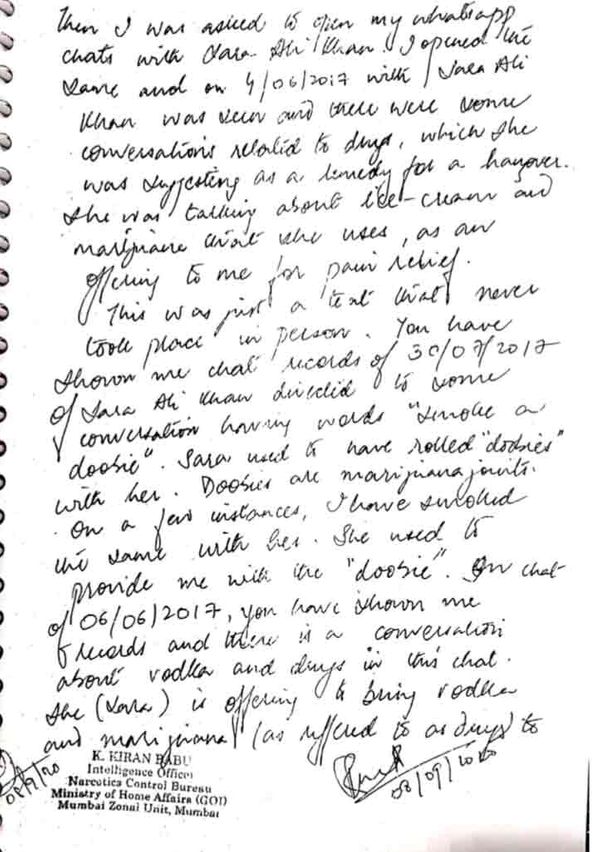 Then I was asked to open my whatsapp
chats with Sara Ali Khan. I opened the
same and on 4/06/2017 with Sara Ali
Khan was seen and there were some
conversations related to drugs, which she
was suggesting as a remedy for a hangover.
She was talking about ice-cream and
marijuana that she uses, as an
offering to me for pain relief.
This was just a text that never
took place in person. You have
shown me chat records of 30/07/2017
of Sara Ali Khan directed to some
conversation having words "smoke a
doobie". Sara used to have rolled "doobies"
with her. Doobies are marijuana joints.
On a few instances, I have smoked
the same with her. She used to
provide me with the "doobie". In chat
of 06/06/2017, you have shown me
records and there is a conversation
about vodka and drugs in this chat.
She (Sara) is offering to bring vodka
and marijuana (as reffered to as drugs) to
K. KIRAN BABU
Intelligence Officer
Narcotics Control Bureau
Ministry of Home Affairs (GOI)
Mumbai Zonal Unit, Mumbai
08/09/2020